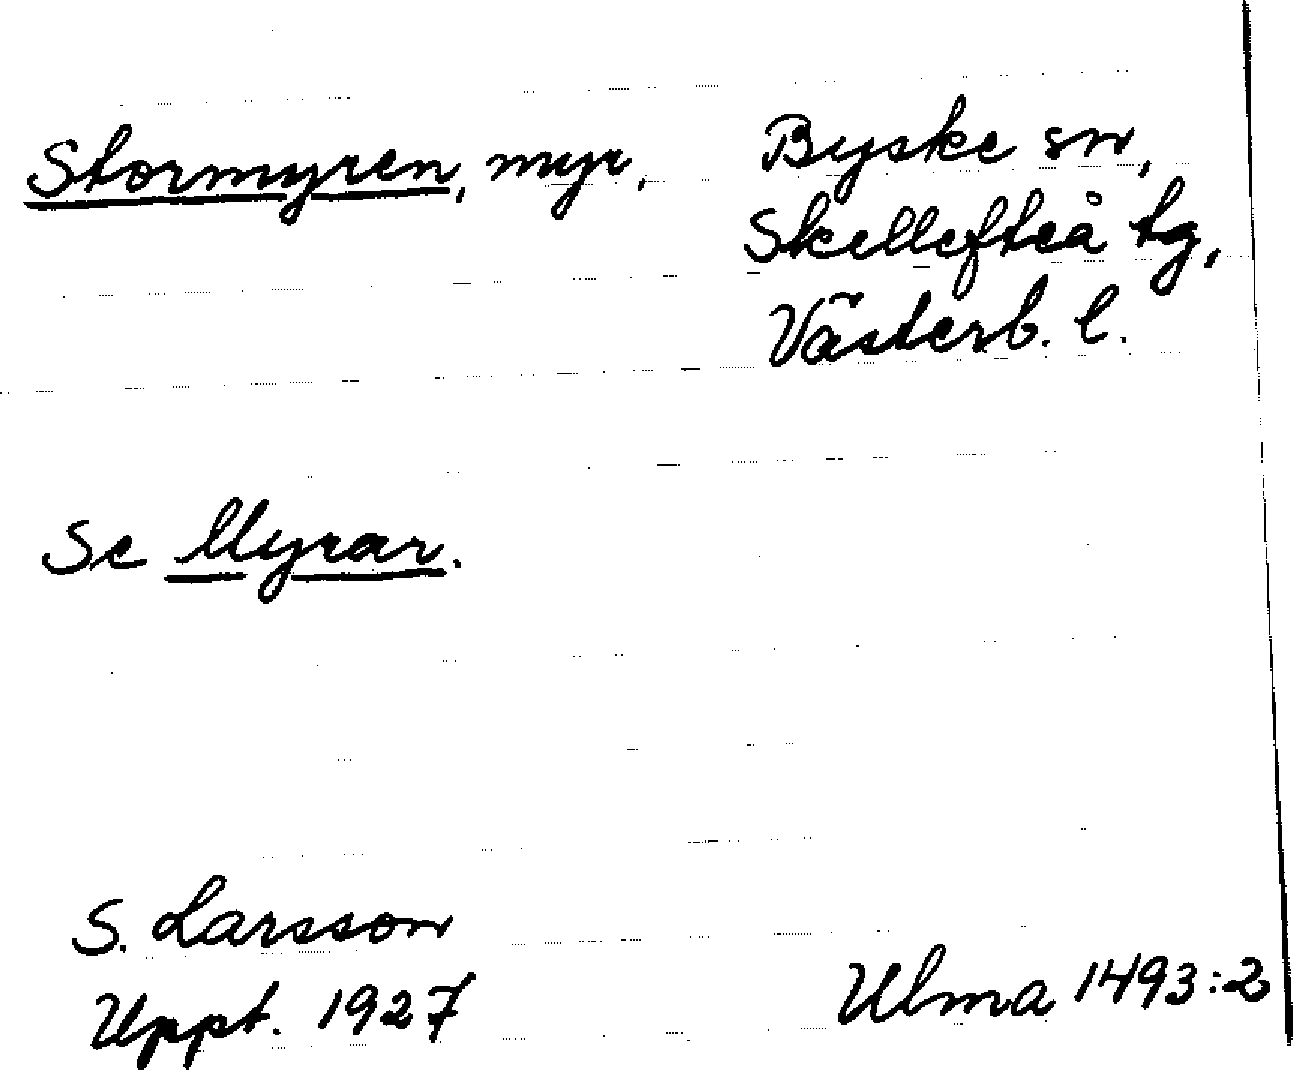 Stormyren, myr, Byske sn,
Skellefteå tg,
Västerb. l.
Se Myrar.
S. Larsson
Uppt. 1927
Ulma 1493:2